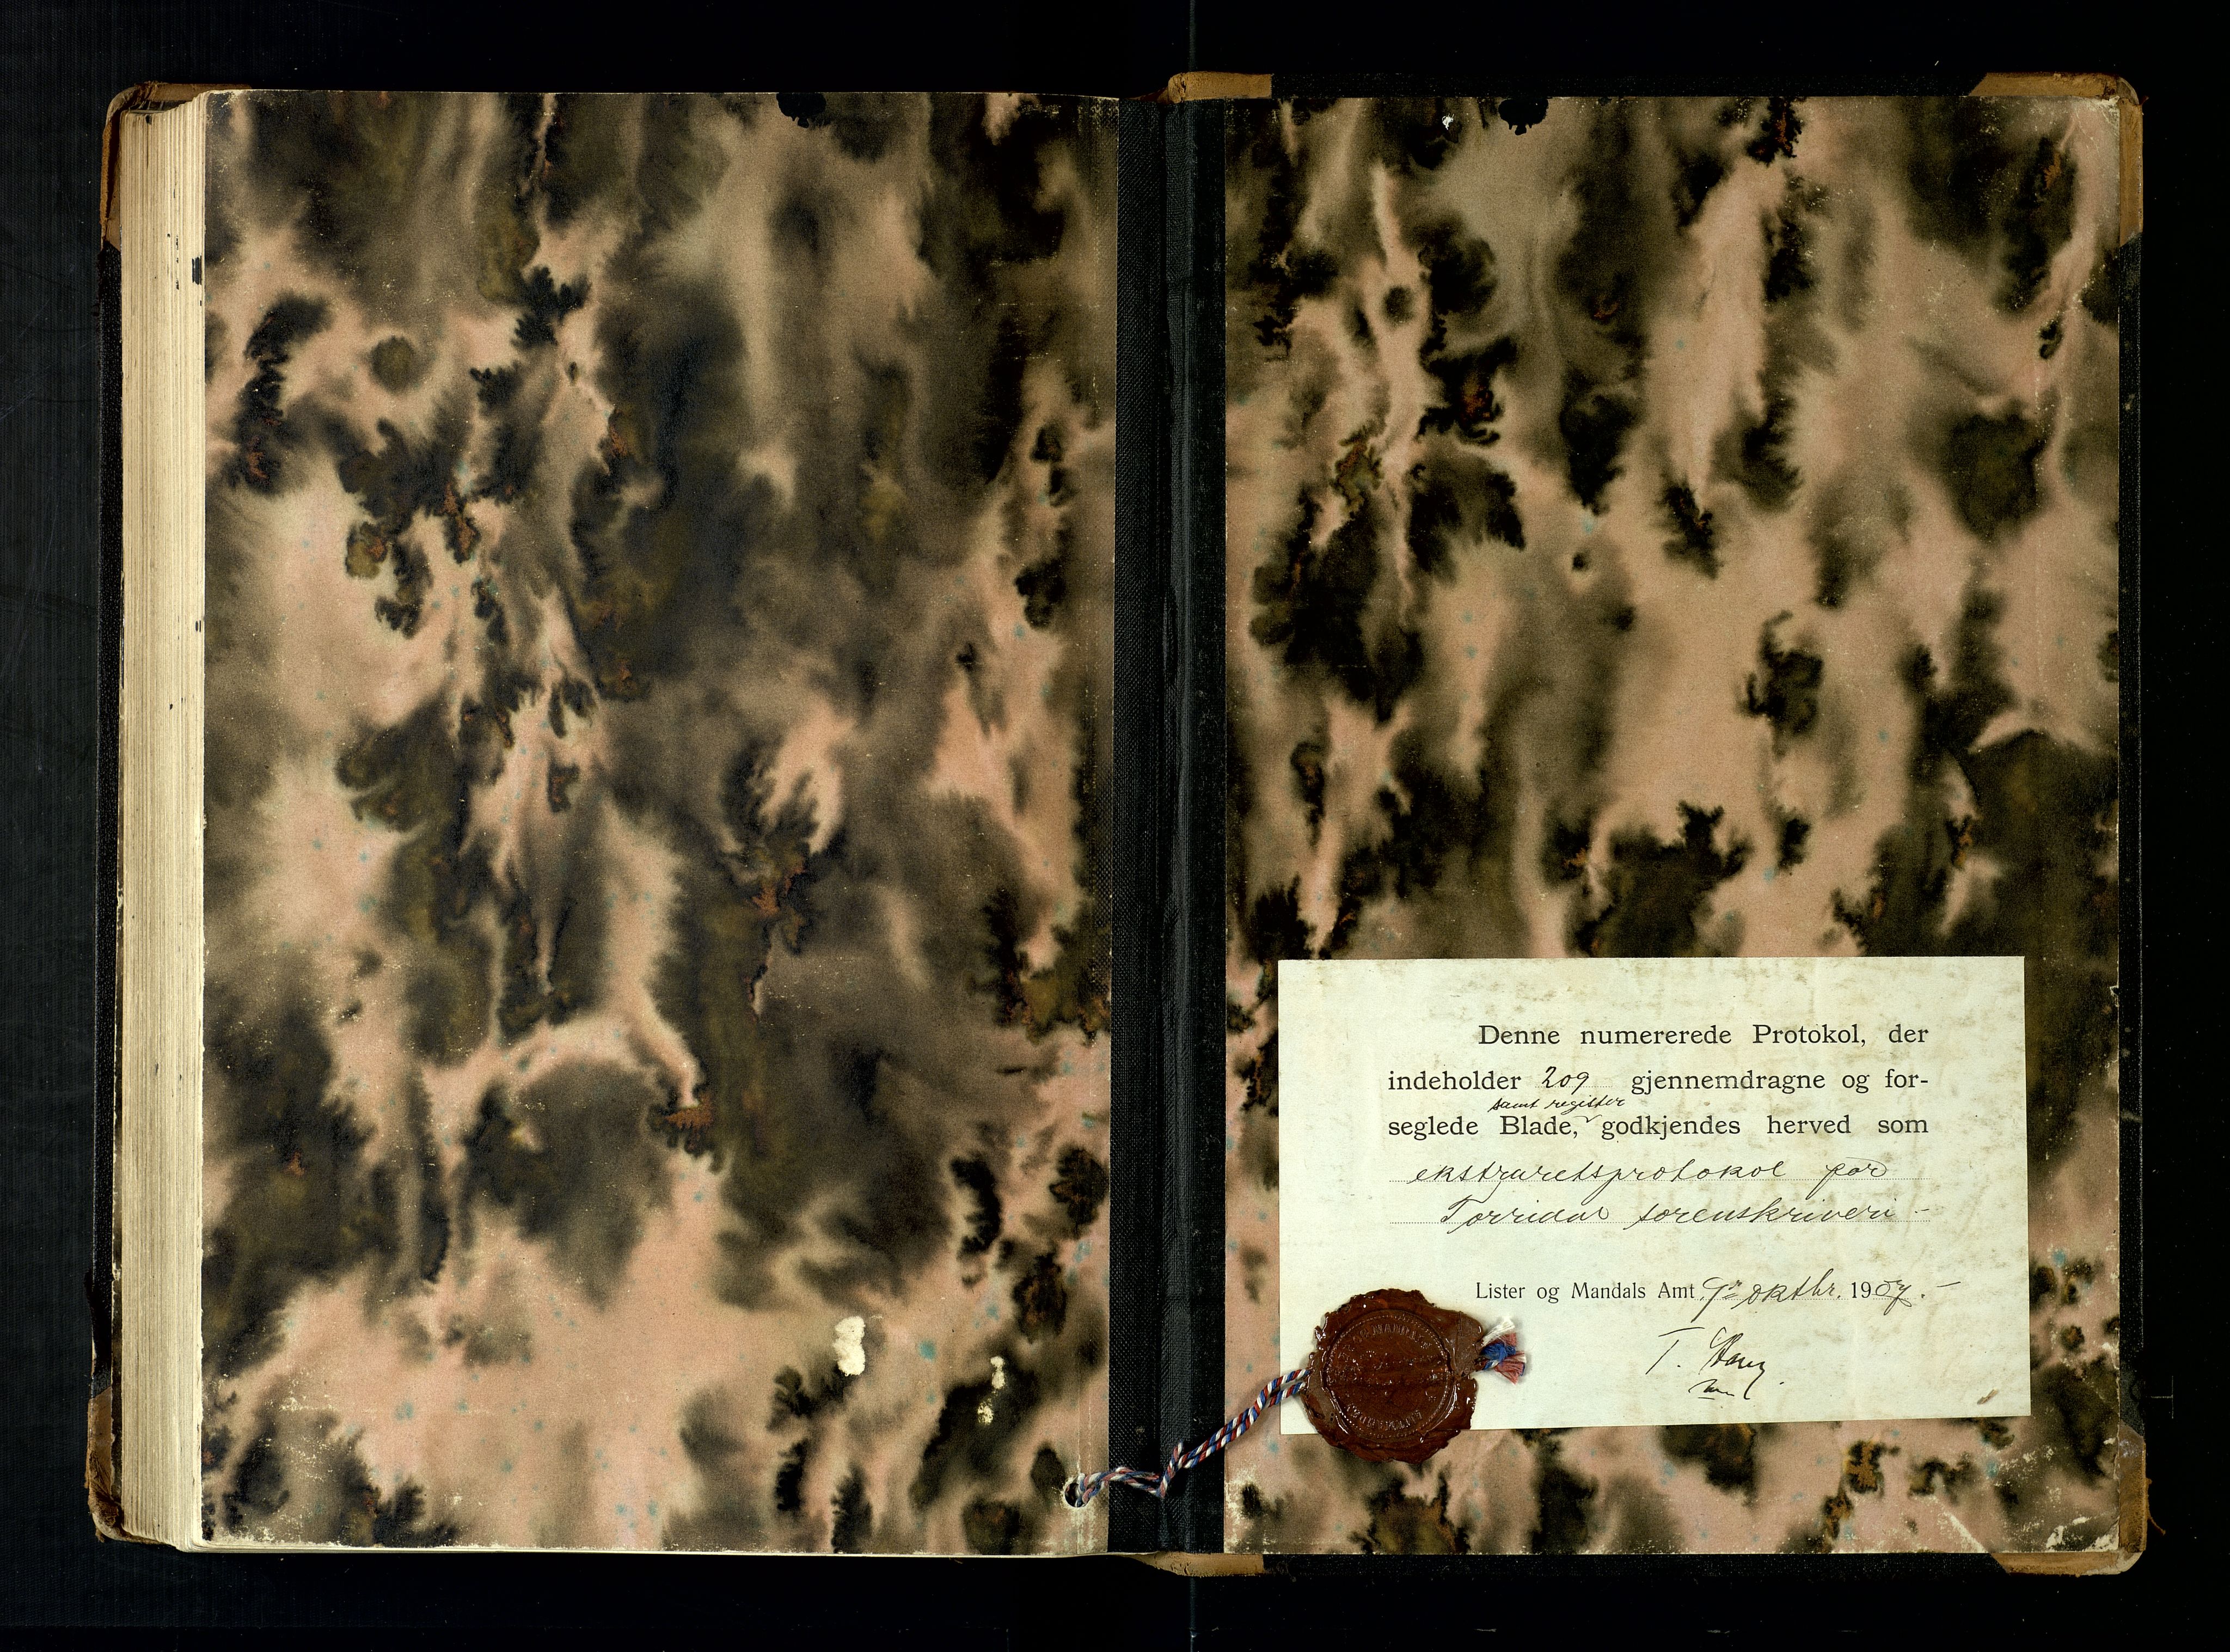 Denne numererede Protokol, der
indeholder 209 gjennemdragne og for-
samt register
seglede Blade, godkjendes herved som
ekstraretsprotokol for
Torridal sorenskriveri -
Lister og Mandals Amt 9de oktbr. 1907. -
T.